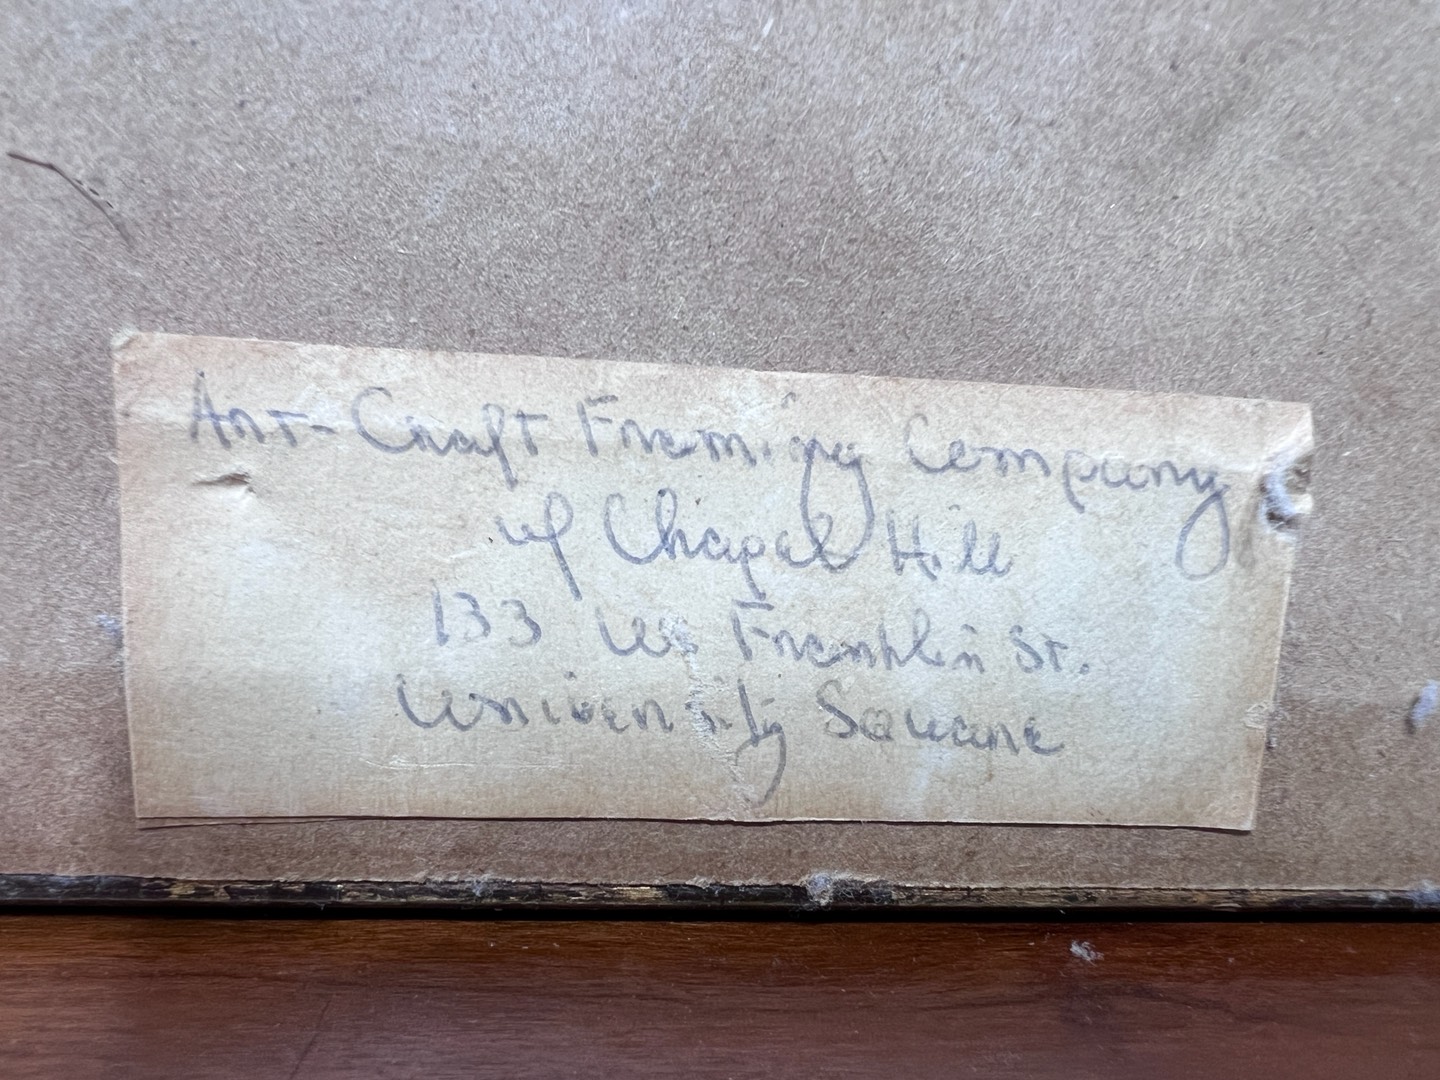 Art-Craft Framing Company
of Chapel Hill
133 W. Franklin St.
University Square